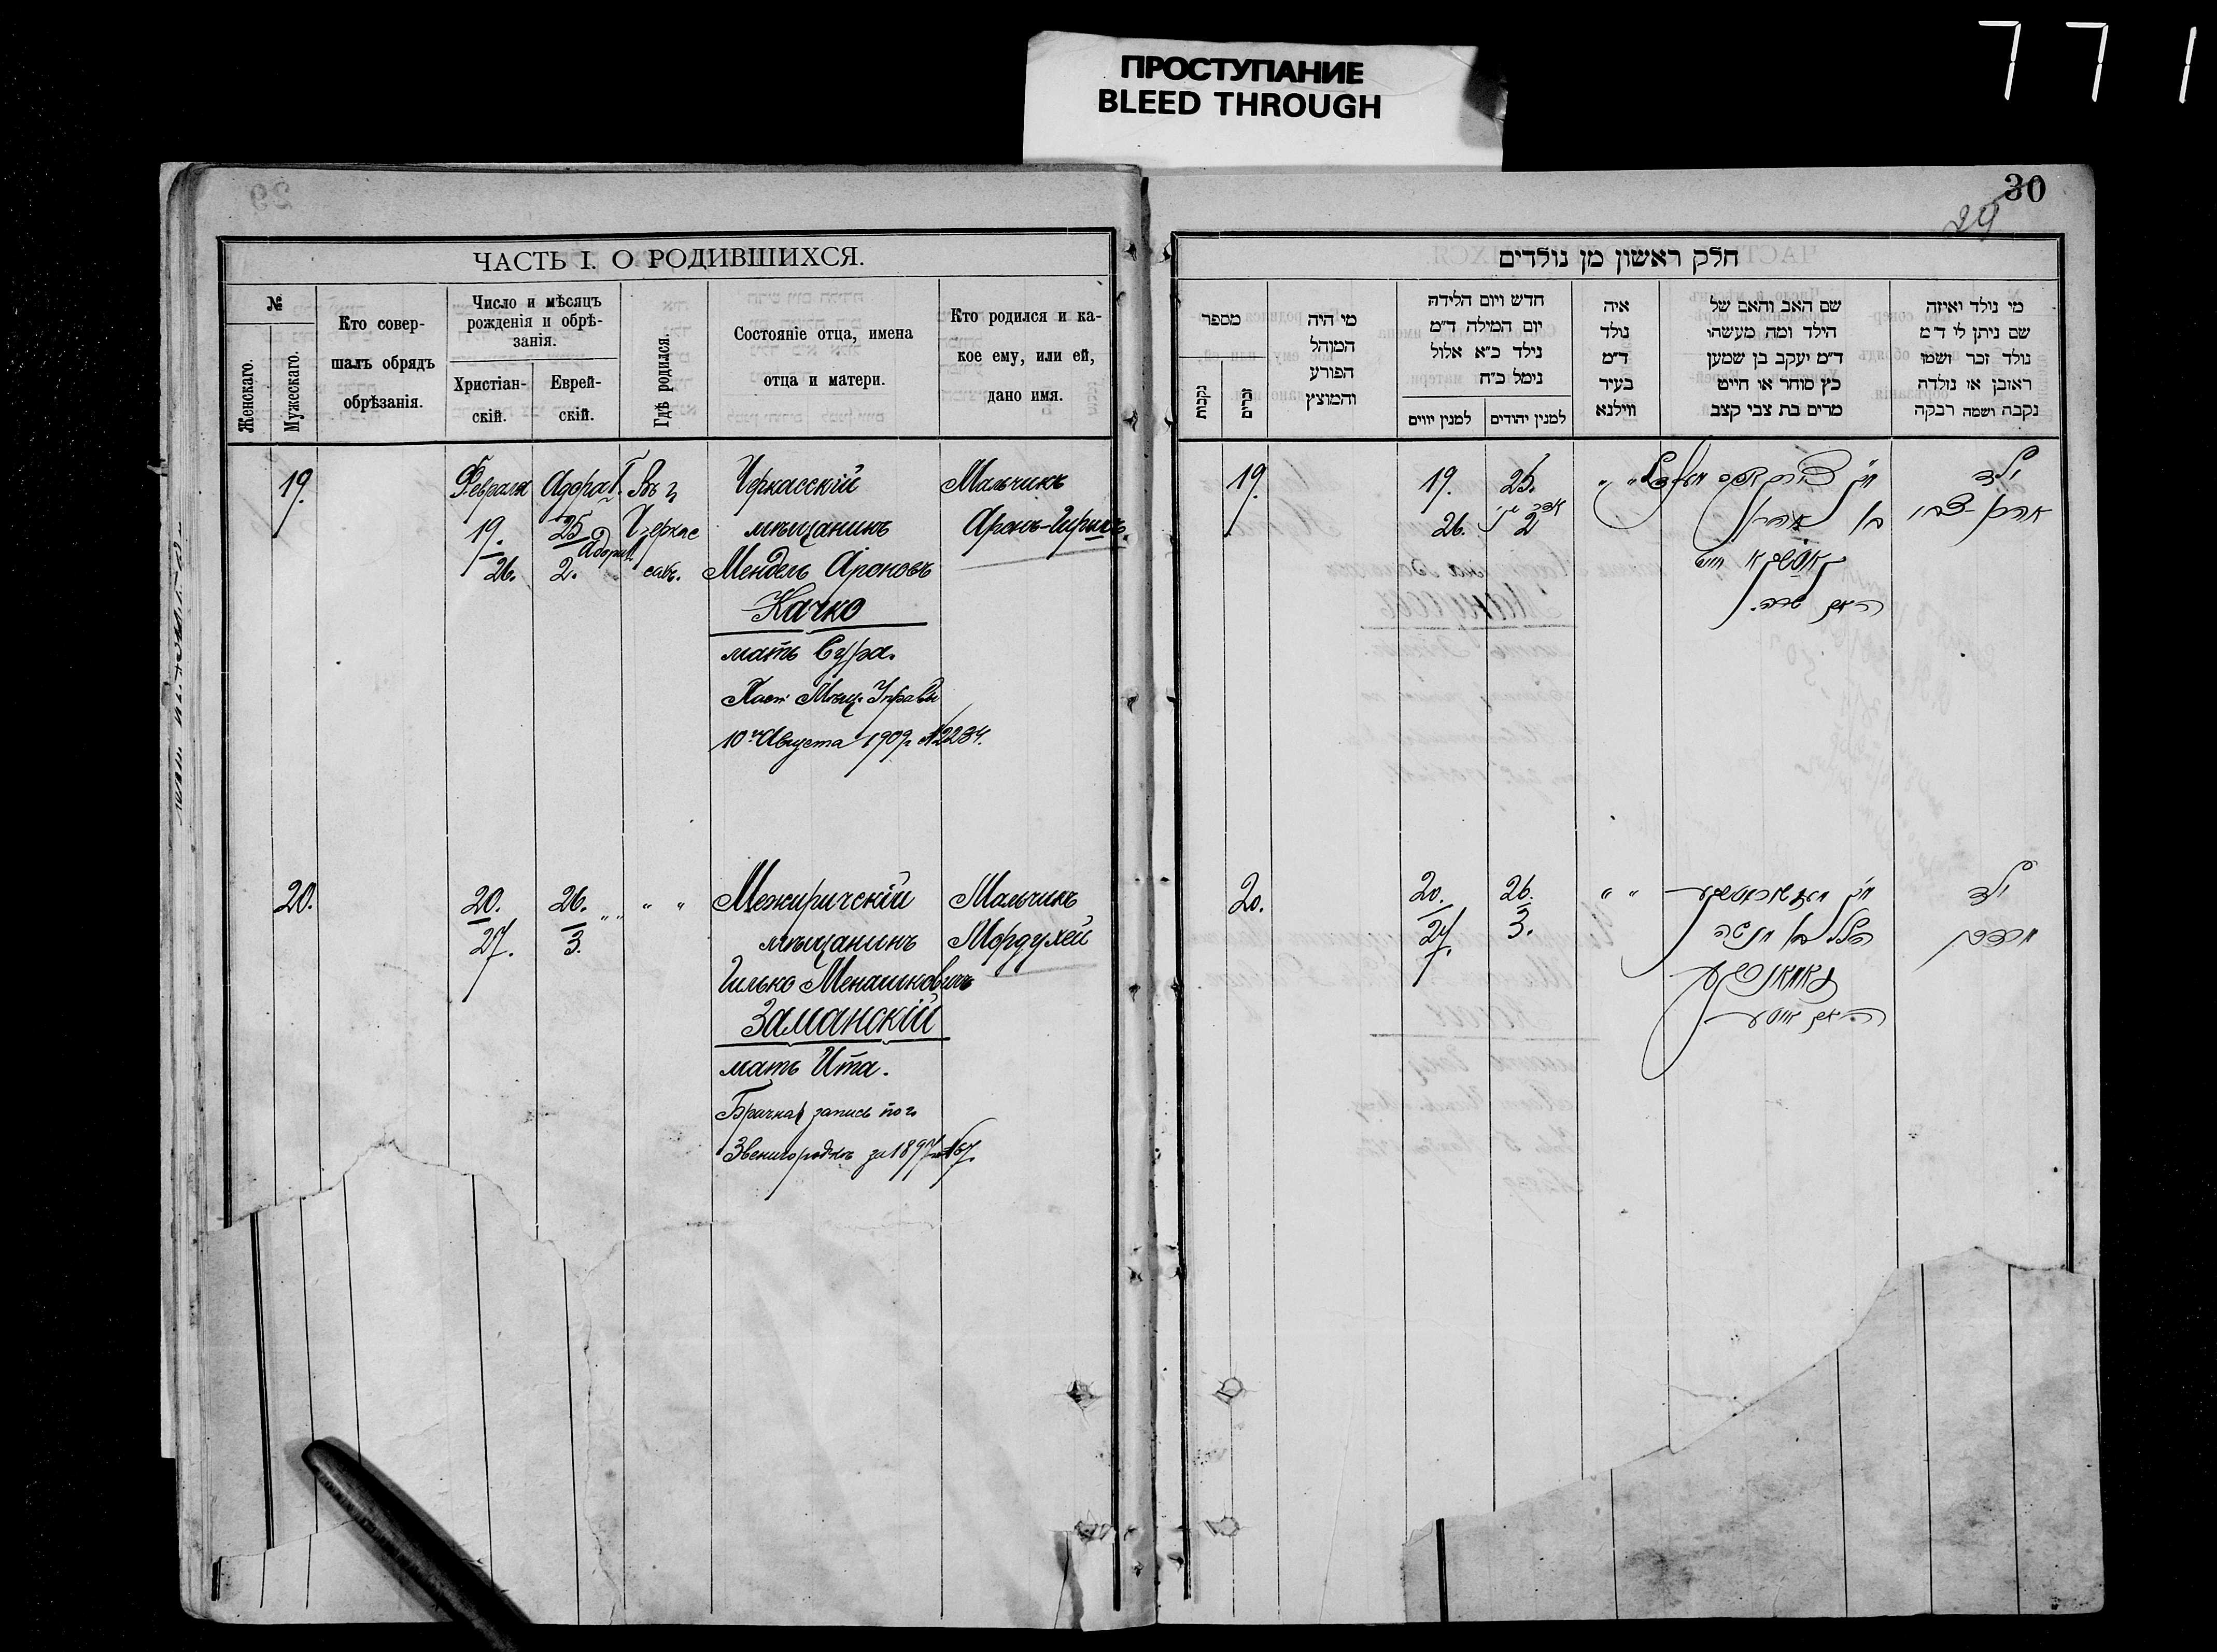 771
ПРОСТУПАНИЕ
BLEED THROUGH
ЧАСТЬ I. О РОДИВШИХСЯ.
№
Женскаго.
Мужескаго.
Кто совер-
шалъ обрядъ
обрѣзанія.
Число и мѣсяцъ
рожденія и обрѣ-
занія.
Христіан-
скій.
Еврей-
скій.
Гдѣ родился.
Состояніе отца, имена
отца и матери.
Кто родился и ка-
кое ему, или ей,
дано имя.
19.
Февраля
19.
26.
Адора I.
25
Адора II
2.
Въ г.
Черкас
сахъ.
Черкасскій
мѣщанинъ
Мендель Ароновъ
Качко
мать Сура.
Пасп. Мѣщ. Управы
10го Августа 1909г. №2234.
Мальчикъ
Аронъ-Гиршъ.
20.
20.
27.
26.
3.
" "
" "
Межиричскій
мѣщанинъ
Гилько Менашковичъ
Заманскій
мать Ита.
Брачная запись по г.
Звенигородкѣ за 1897г. №67.
Мальчикъ
Мордухей
30
29
חלק ראשון מן נולדים
מספר
נקבות
זכרים
מי היה
המוהל
הפורע
והמוצץ
חדש ויום הלידה
יום המילה ד״מ
נילד כ״א אלול
נימל כ״ח
למנין יווים
למנין יהודים
איה
נולד
ד״מ
בעיר
ווילנא
שם האב והאם של
הילד ומה מעשהו
ד״מ יעקב בן שמען
כץ סוחר או חייט
מרים בת צבי קצב
מי נולד ואיזה
שם ניתן לו ד״מ
נולד זכר ושמו
ראובן או נולדה
נקבה ושמה רבקה
19.
19.
26.
25.
2
" "
בן אהרן
האם שרה.
ילד
אהרן-צבי
20.
20.
27.
26.
3.
" "
הלל בן מנשה
זאמאנסקי
האם איטע
ילד
מרדכי